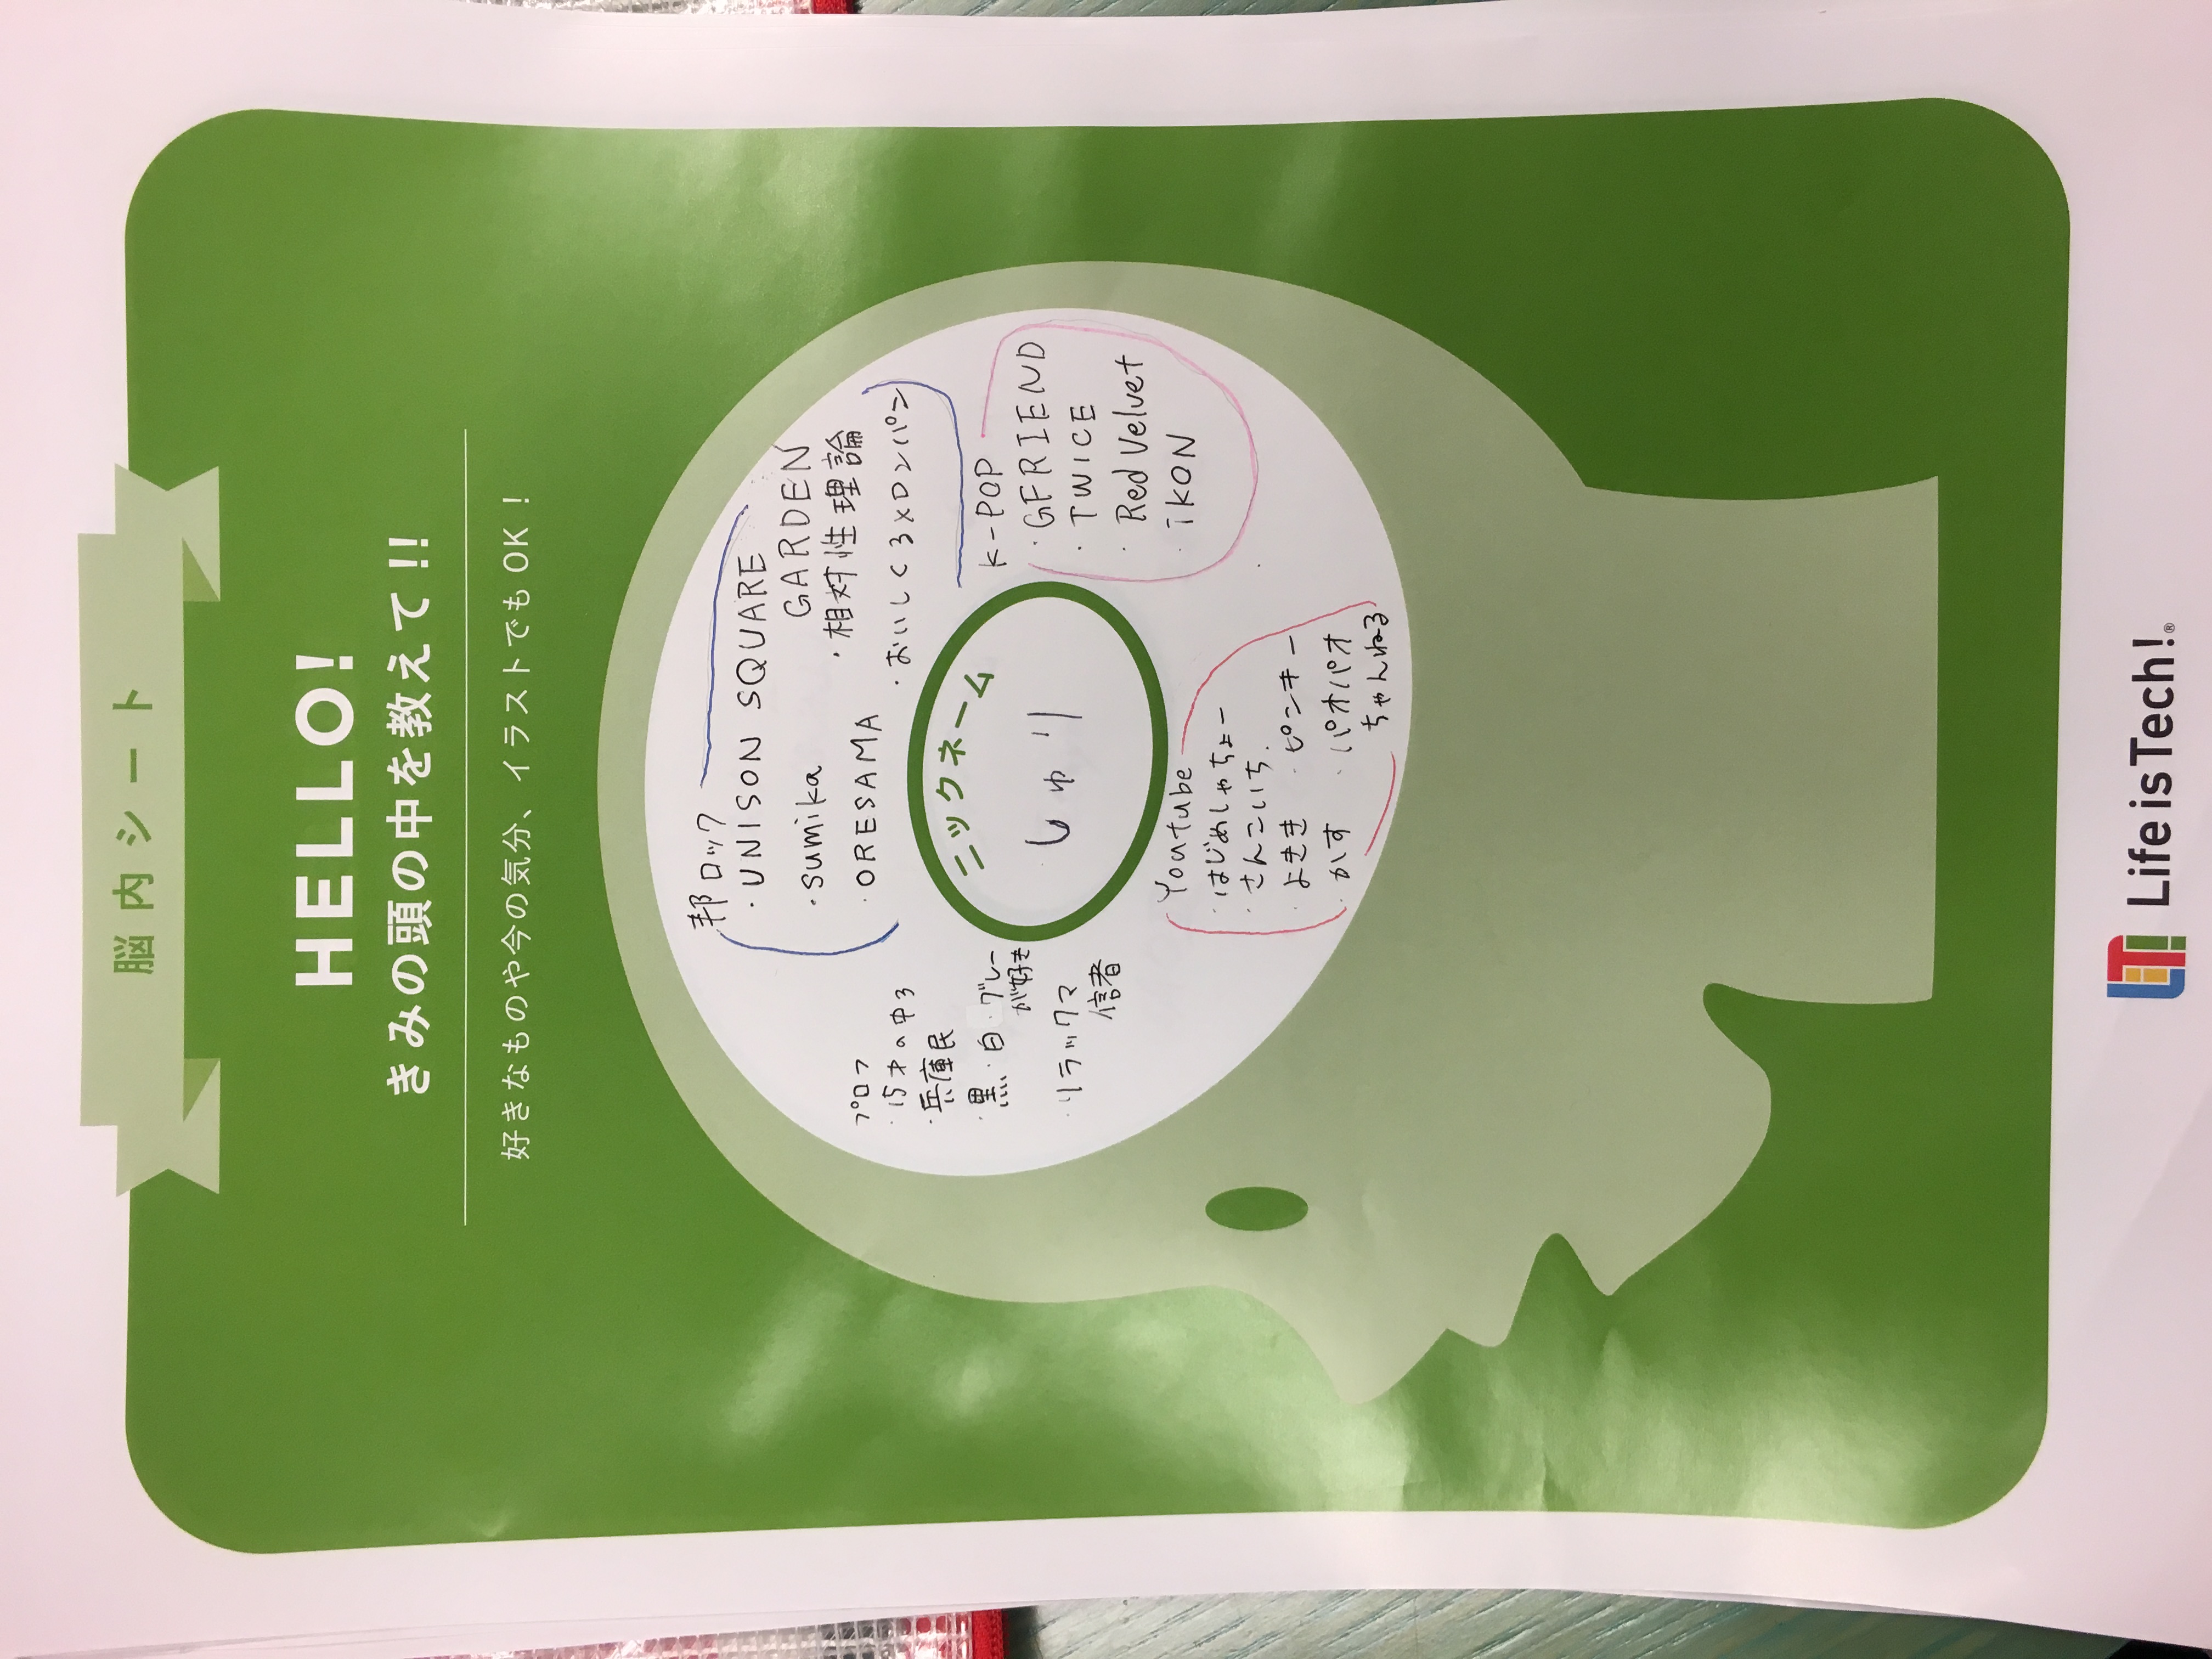 脳内シート
HELLO!
きみの頭の中を教えて!!
好きなものや今の気分、イラストでもOK！
邦ロック
・UNISON SQUARE
GARDEN
・sumika
・相対性理論
・ORESAMA
・おいしくるメロンパン
プロフ
・15才の中3
・兵庫民
・黒・白・グレー
が好き
・リラックマ
信者
ニックネーム
しゅり
K-POP
・GFRIEND
・TWICE
・Red Velvet
・iKON
Youtube
・はじめしゃちょー
・さんこいち.
・よきき ・ピンキー
・かす ・パオパオ
ちゃんねる
LiT!
Life is Tech!®